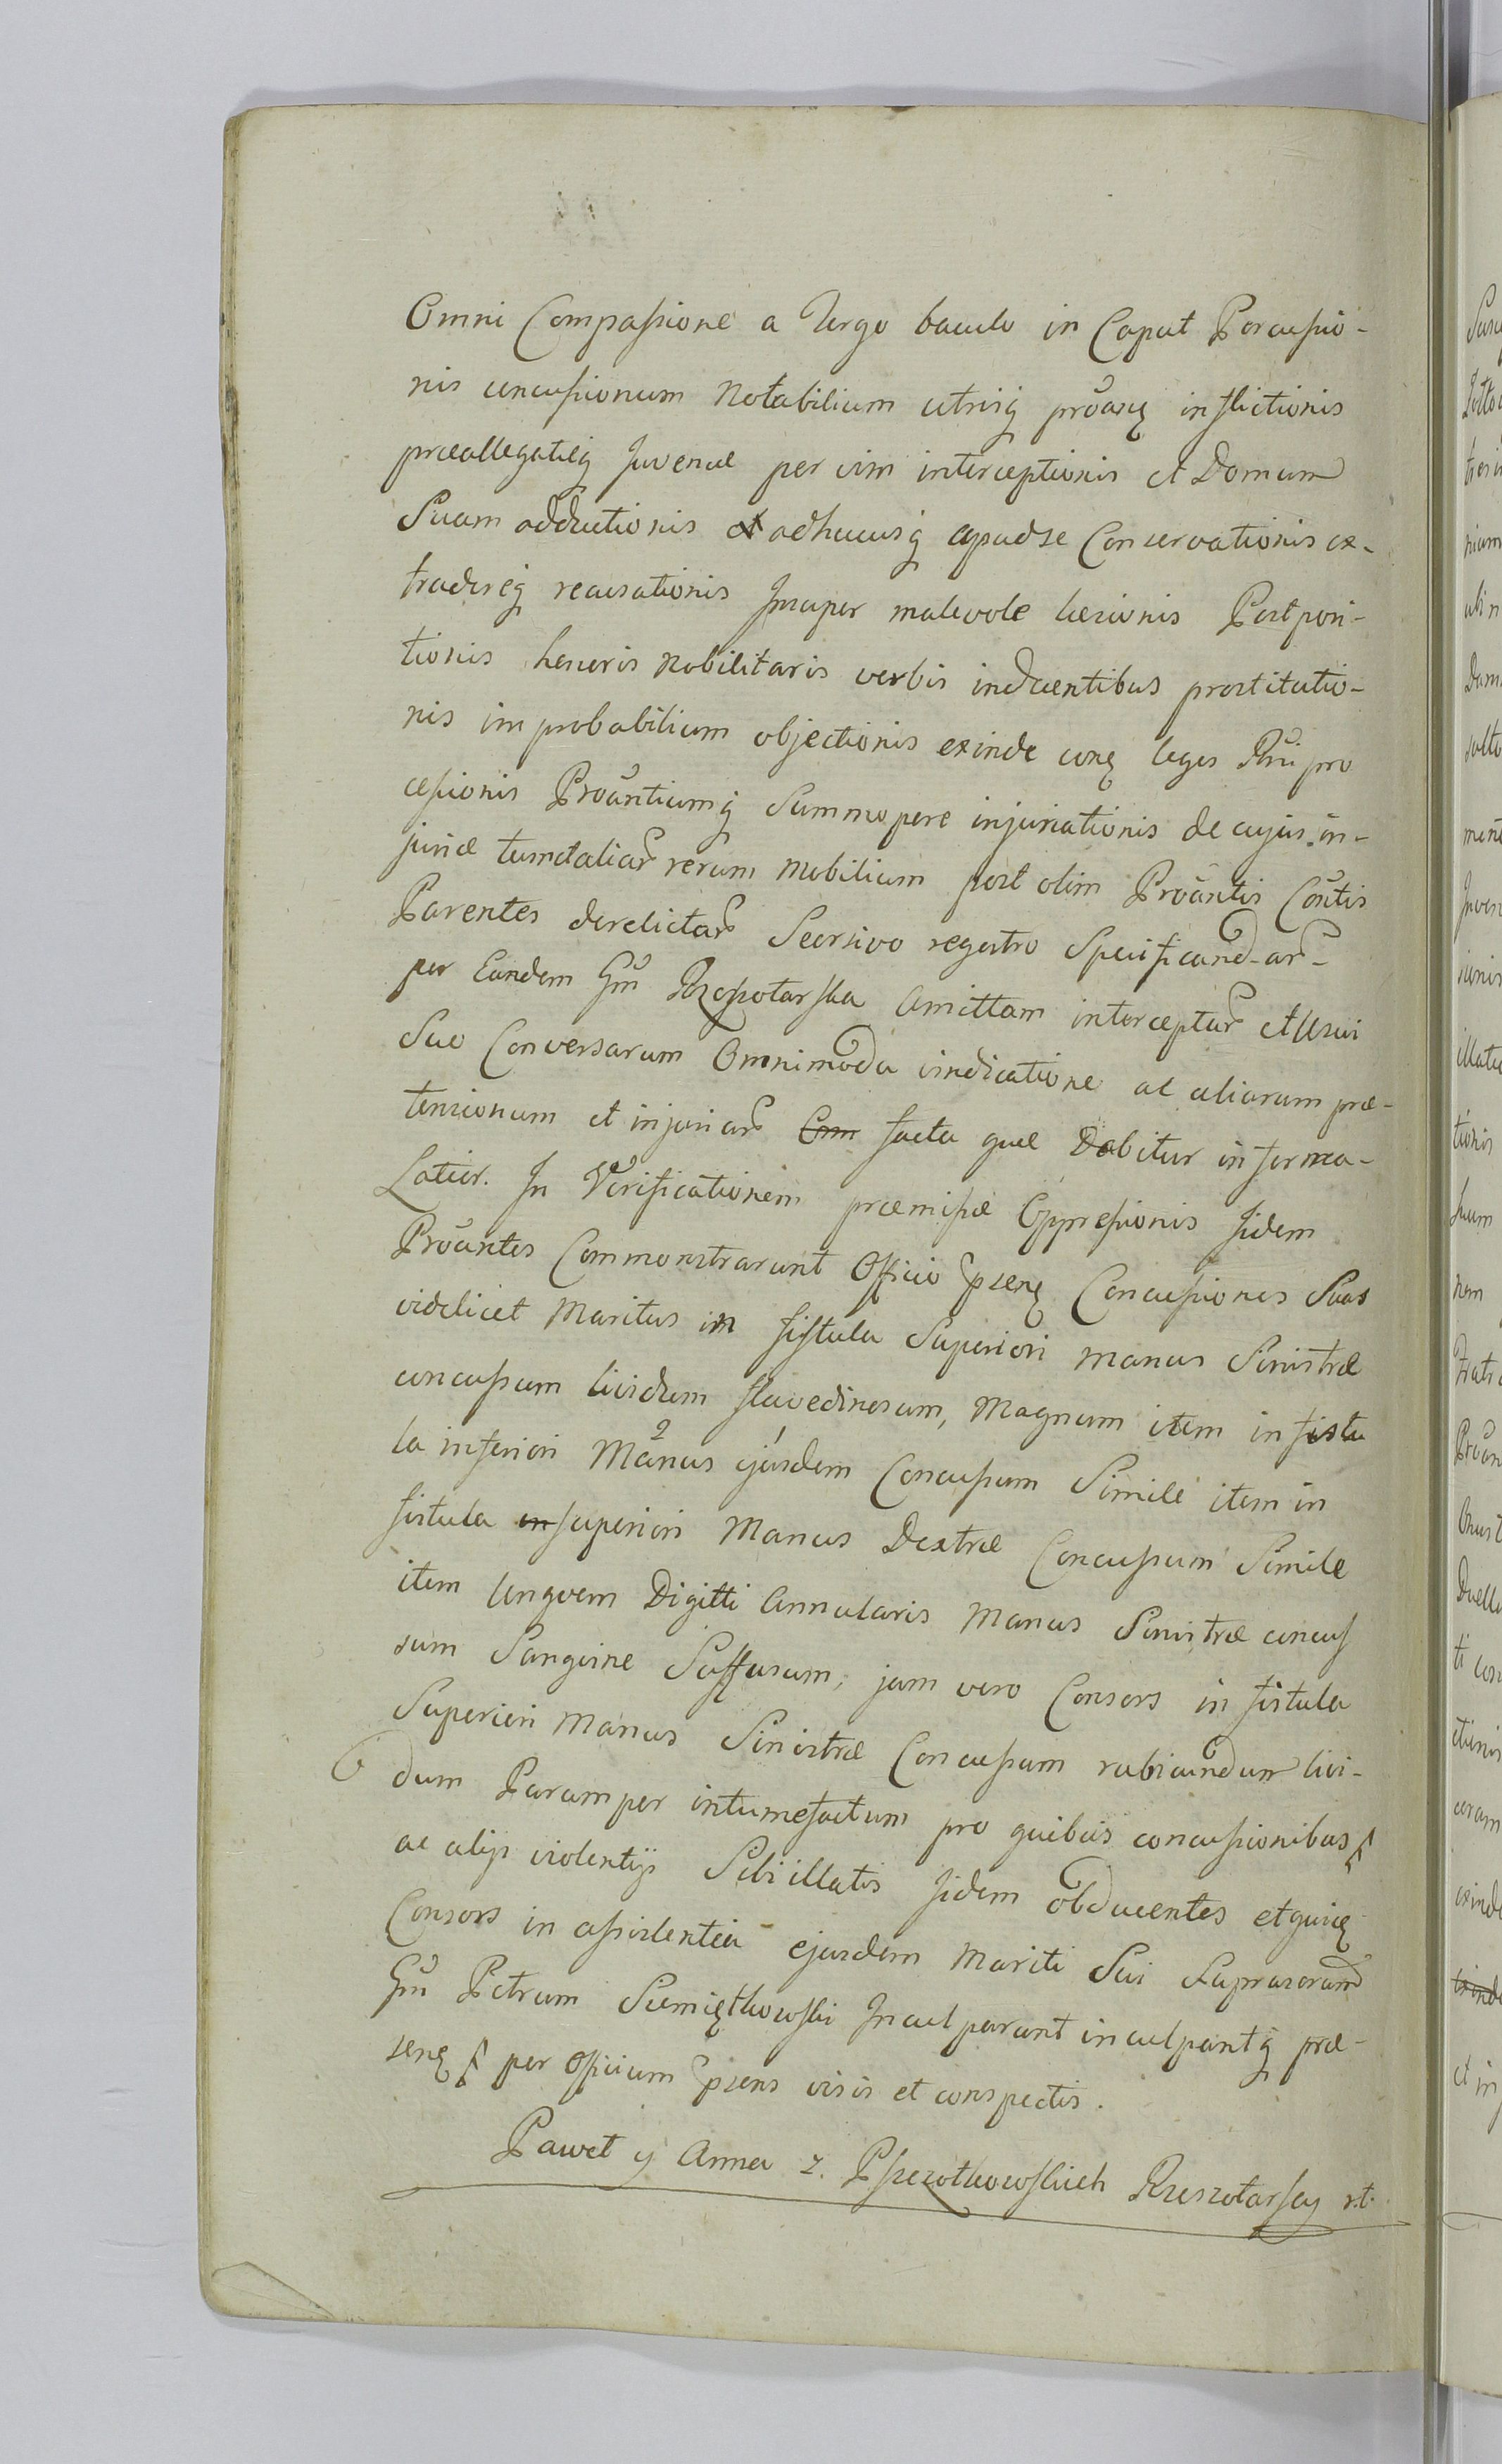 Omni Compassione a Tergo baculo in Caput Percussio-
nis concussionum Notabilium utriq͛ prõaeq͛ inflictionis
præallegatiq͛ Juvencæ per vim interceptionis et Domum
Suam adductionis et adhucusq͛ apud se Conservationis ex-
tradiq͛ recusationis Insuper malevole læsionis Postposi-
tionis honoris Nobilitaris verbis inducentibus prostitutio-
nis improbabilium objectionis exinde conq͛ leges Rni pro
cessionis Proãntiumq͛ Summopere injuriationis de cujus in-
juriæ tum et aliar̃ rerum Mobilium post olim Proãntis Coñtis
Parentes derelictar̃ Seorsivo regestro Specificand-ar̃-
per Eundem Gm̃ Rzeszotarska Amittam interceptar̃ et Usui
Suo Conversarum Omnimoda vindicatione ac aliarum præ-
tensionum et injuriar̃ facta quæ Dabitur informa-
Latior. In Verificationem præmissæ Oppressionis Iidem
Proãntes Commonstrarunt Officio p̃senq͛ Concussiones Suas
videlicet Maritus in fistula Superiori Manus Sinistræ
concussum lividum flavedinosum, Magnum item in fistu
la inferiori Manus ejusdem Concussum Simile item in
fistula superiori Manus Dextræ Concussum Simile
item Ungvem Digitti Annularis Manus Sinistræ concus
sum Sangvine Suffusum, jam vero Consors in fistula
Superiori Manus Sinistræ Concussum rubicundum livi-
dum Parumper intumefactum pro quibus concussionibus
ac alijs violentijs Sibi illatis Iidem obducentes
Consors in assistentia ejusdem Mariti Sui
Gm̃ Petrum Siemiętkowski Inculparunt inculpantq͛ præ-
senq͛ per Officium p̃sens visis et conspectis.
Paweł y Anna z. Pszczołkowskich Rzeszotarscy